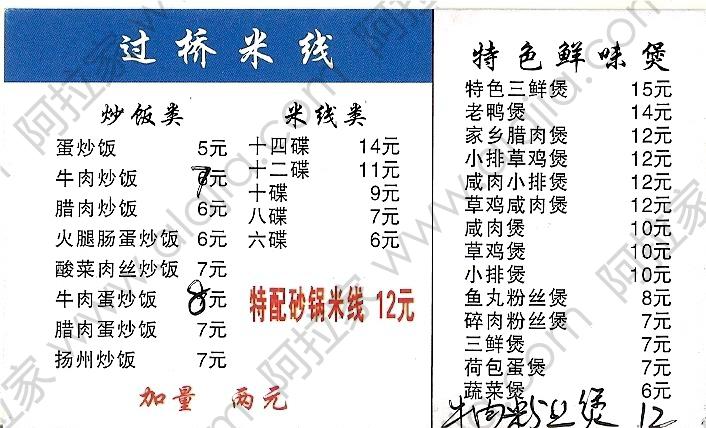 过桥米线
炒饭类
蛋炒饭 5元
牛肉炒饭 7元
腊肉炒饭 6元
火腿肠蛋炒饭 6元
酸菜肉丝炒饭 7元
牛肉蛋炒饭 8元
腊肉蛋炒饭 7元
扬州炒饭 7元
加量 两元
米线类
十四碟 14元
十二碟 11元
十碟 9元
八碟 7元
六碟 6元
特配砂锅米线 12元
特色鲜味煲
特色三鲜煲 15元
老鸭煲 14元
家乡腊肉煲 12元
小排草鸡煲 12元
咸肉小排煲 12元
草鸡咸肉煲 12元
咸肉煲 10元
草鸡煲 10元
小排煲 10元
鱼丸粉丝煲 8元
碎肉粉丝煲 7元
三鲜煲 7元
荷包蛋煲 7元
蔬菜煲 6元
牛肉粉丝煲 12
阿拉家 www.alajia.com